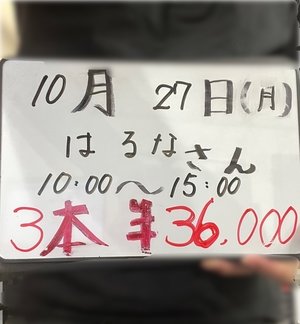 10月 27日(月)
はるなさん
10:00〜15:00
3本 ¥36,000